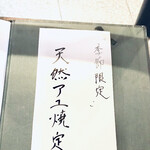 季節限定
天然アユ焼定